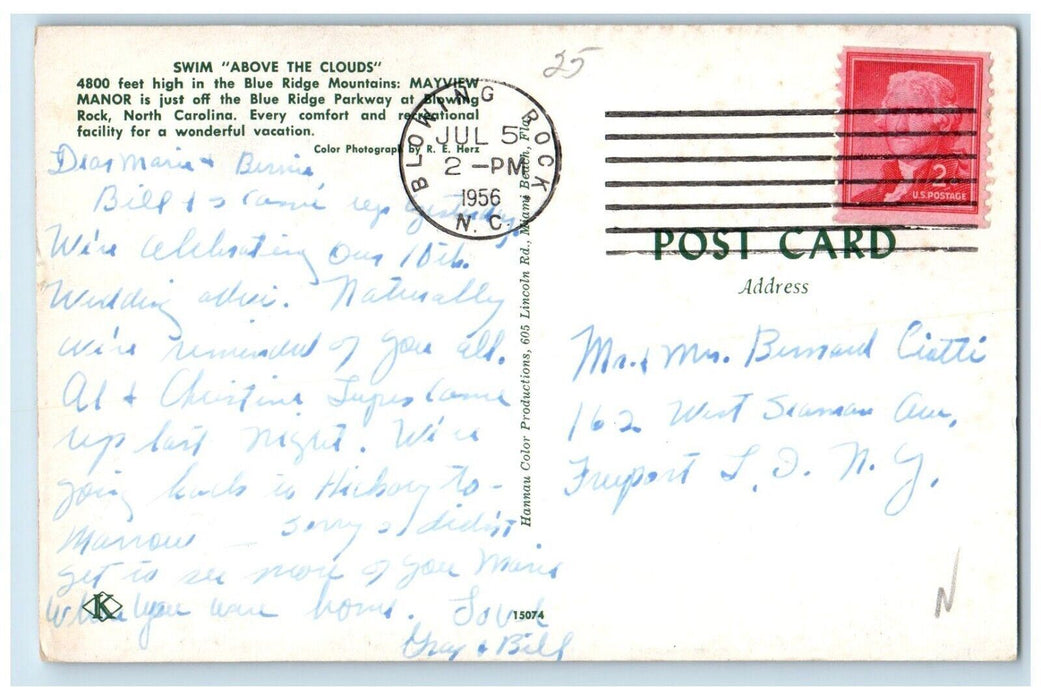 SWIM "ABOVE THE CLOUDS"
4800 feet high in the Blue Ridge Mountains: MAYVIEW
MANOR is just off the Blue Ridge Parkway at Blowing
Rock, North Carolina. Every comfort and recreational
facility for a wonderful vacation.
Color Photograph by R. E. Herz
25
BLOWING ROCK
JUL 5
2 -PM
1956
N.C.
2¢
U.S. POSTAGE
Dear Marie & Bernie
Bill & I came up yesterday.
We're celebrating our 10th
Wedding . Naturally
we're reminded of you all.
Al & Christine came
up last night. We're
going back to Hickory to-
morrow — Sorry I didn't
get to see more of you Marie
when you were home. Love
Gray & Bill
K
15074
Hannau Color Productions, 605 Lincoln Rd., Miami Beach, Fla.
POST CARD
Address
Mr. & Mrs. Bernard Ciotti
162 West Seaman Ave,
Freeport L. I. N. Y.
N